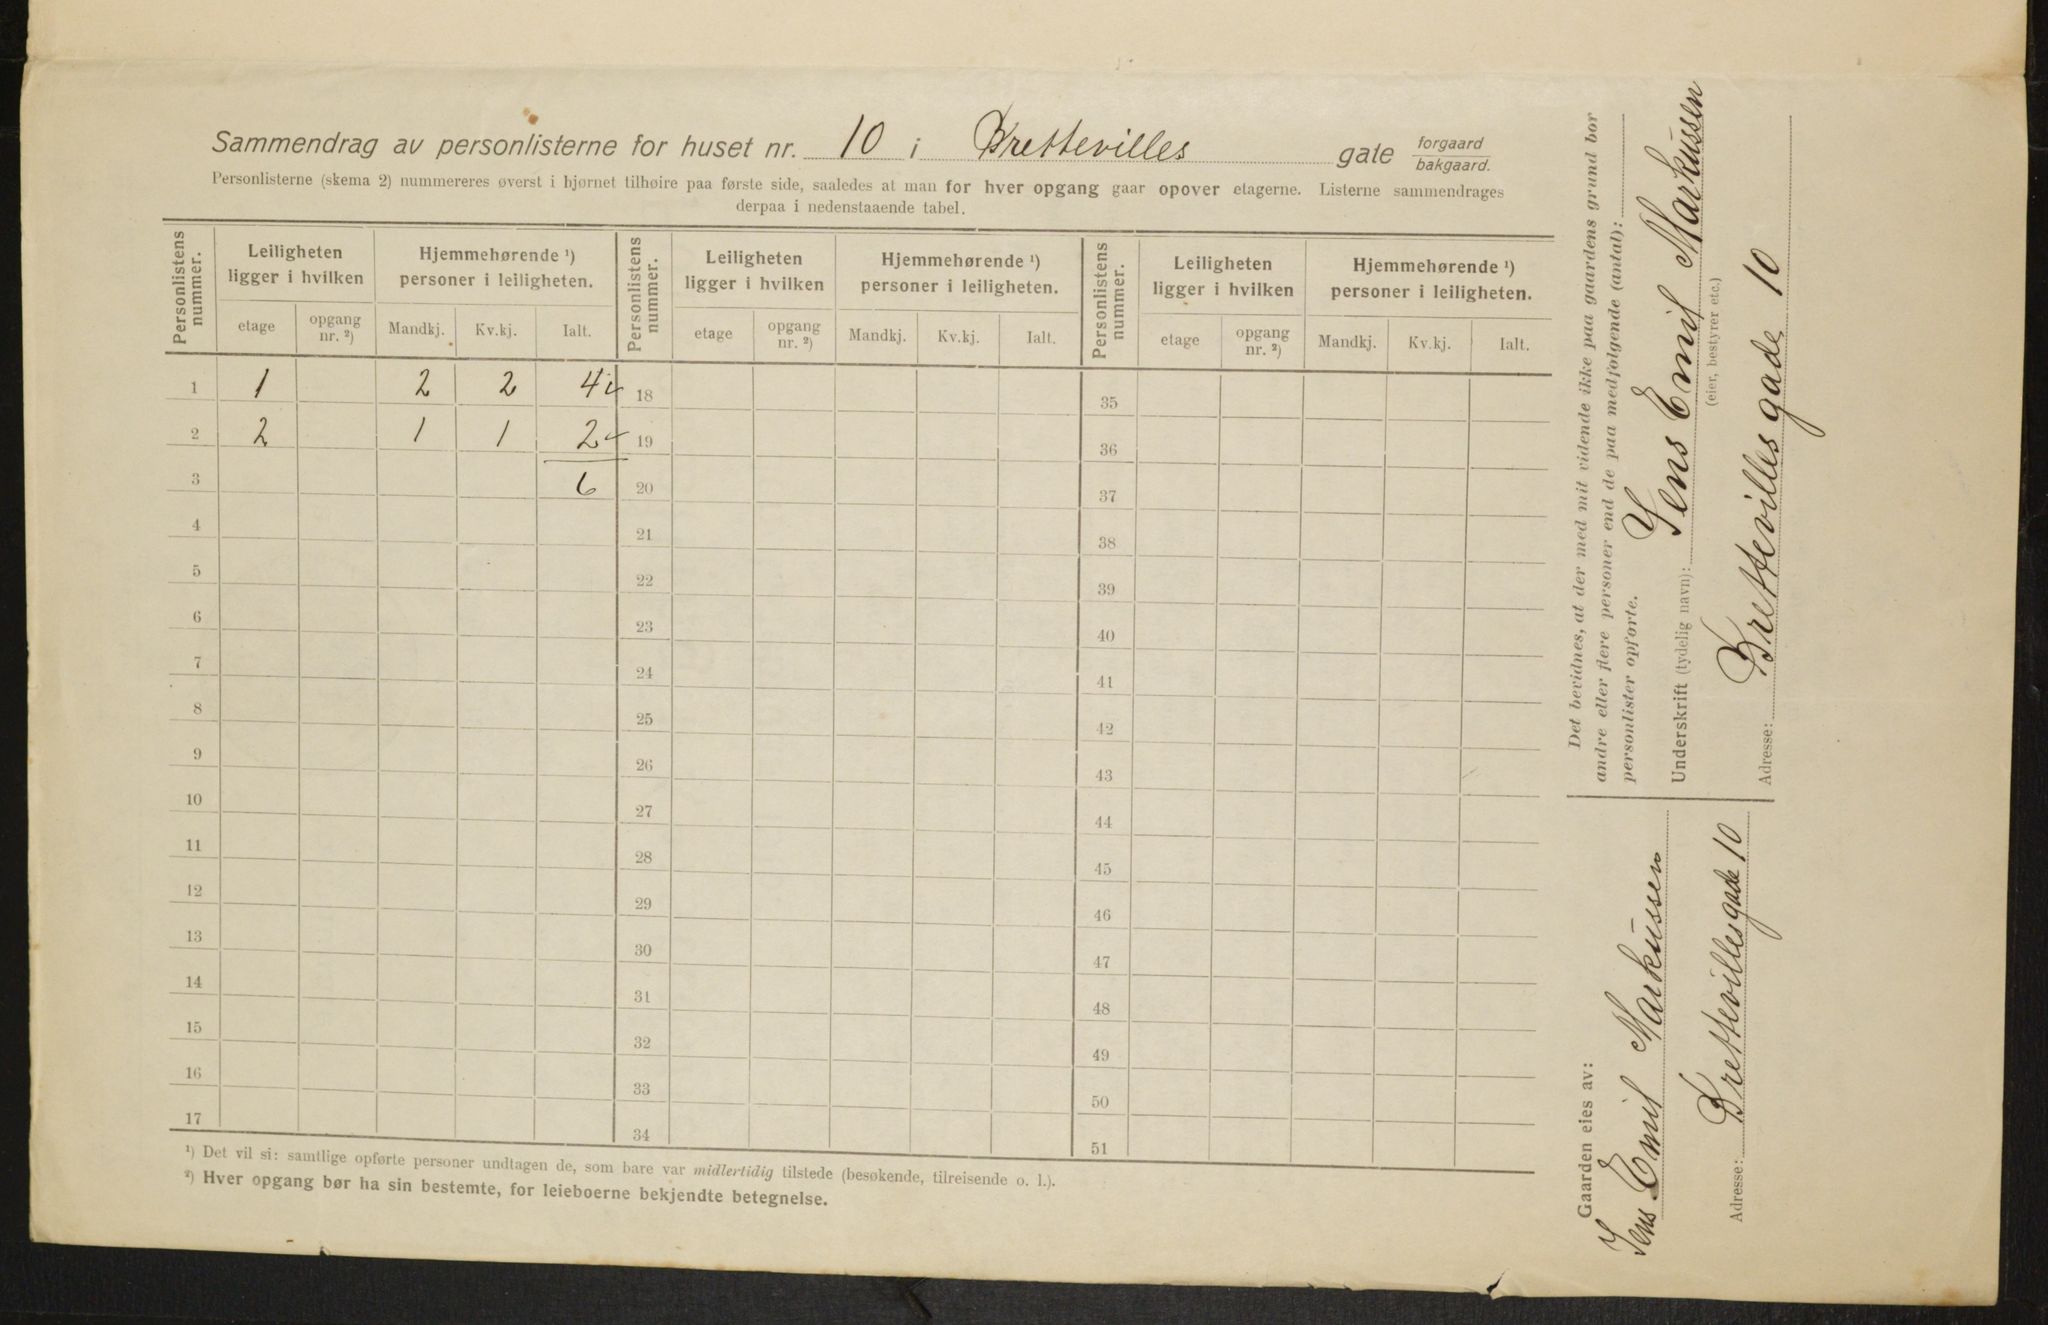 Sammendrag av personlisterne for huset nr. 10 i Brettevilles gate forgaard bakgaard.
Personlisterne (skema 2) nummereres øverst i hjørnet tilhøire paa første side, saaledes at man for hver opgang gaar opover etagerne. Listerne sammendrages
derpaa i nedenstaaende tabel.
Personlistens nummer. Leiligheten ligger i hvilken Hjemmehørende ¹) personer i leiligheten. Personlistens nummer. Leiligheten ligger i hvilken Hjemmehørende ¹) personer i leiligheten. Personlistens nummer. Leiligheten ligger i hvilken Hjemmehørende ¹) personer i leiligheten.
etage opgang nr. ²) Mandkj. Kv.kj. Ialt. etage opgang nr. ²) Mandkj. Kv.kj. Ialt. etage opgang nr. ²) Mandkj. Kv.kj. Ialt.
1 1 2 2 4 18 35
2 2 1 1 2 19 36
3 6 20 37
4 21 38
5 22 39
6 23 40
7 24 41
8 25 42
9 26 43
10 27 44
11 28 45
12 29 46
13 30 47
14 31 48
15 32 49
16 33 50
17 34 51
¹) Det vil si: samtlige opførte personer undtagen de, som bare var midlertidig tilstede (besøkende, tilreisende o. l.).
²) Hver opgang bør ha sin bestemte, for leieboerne bekjendte betegnelse.
Det bevidnes, at der med mit vidende ikke paa gaardens grund bor
andre eller flere personer end de paa medfølgende (antal):
personlister opførte.
Underskrift (tydelig navn): Jens Emil Markussen
(eier, bestyrer etc.)
Adresse: Brettevilles gade 10
Gaarden eies av:
Jens Emil Markussen
Adresse: Brettevillesgade 10